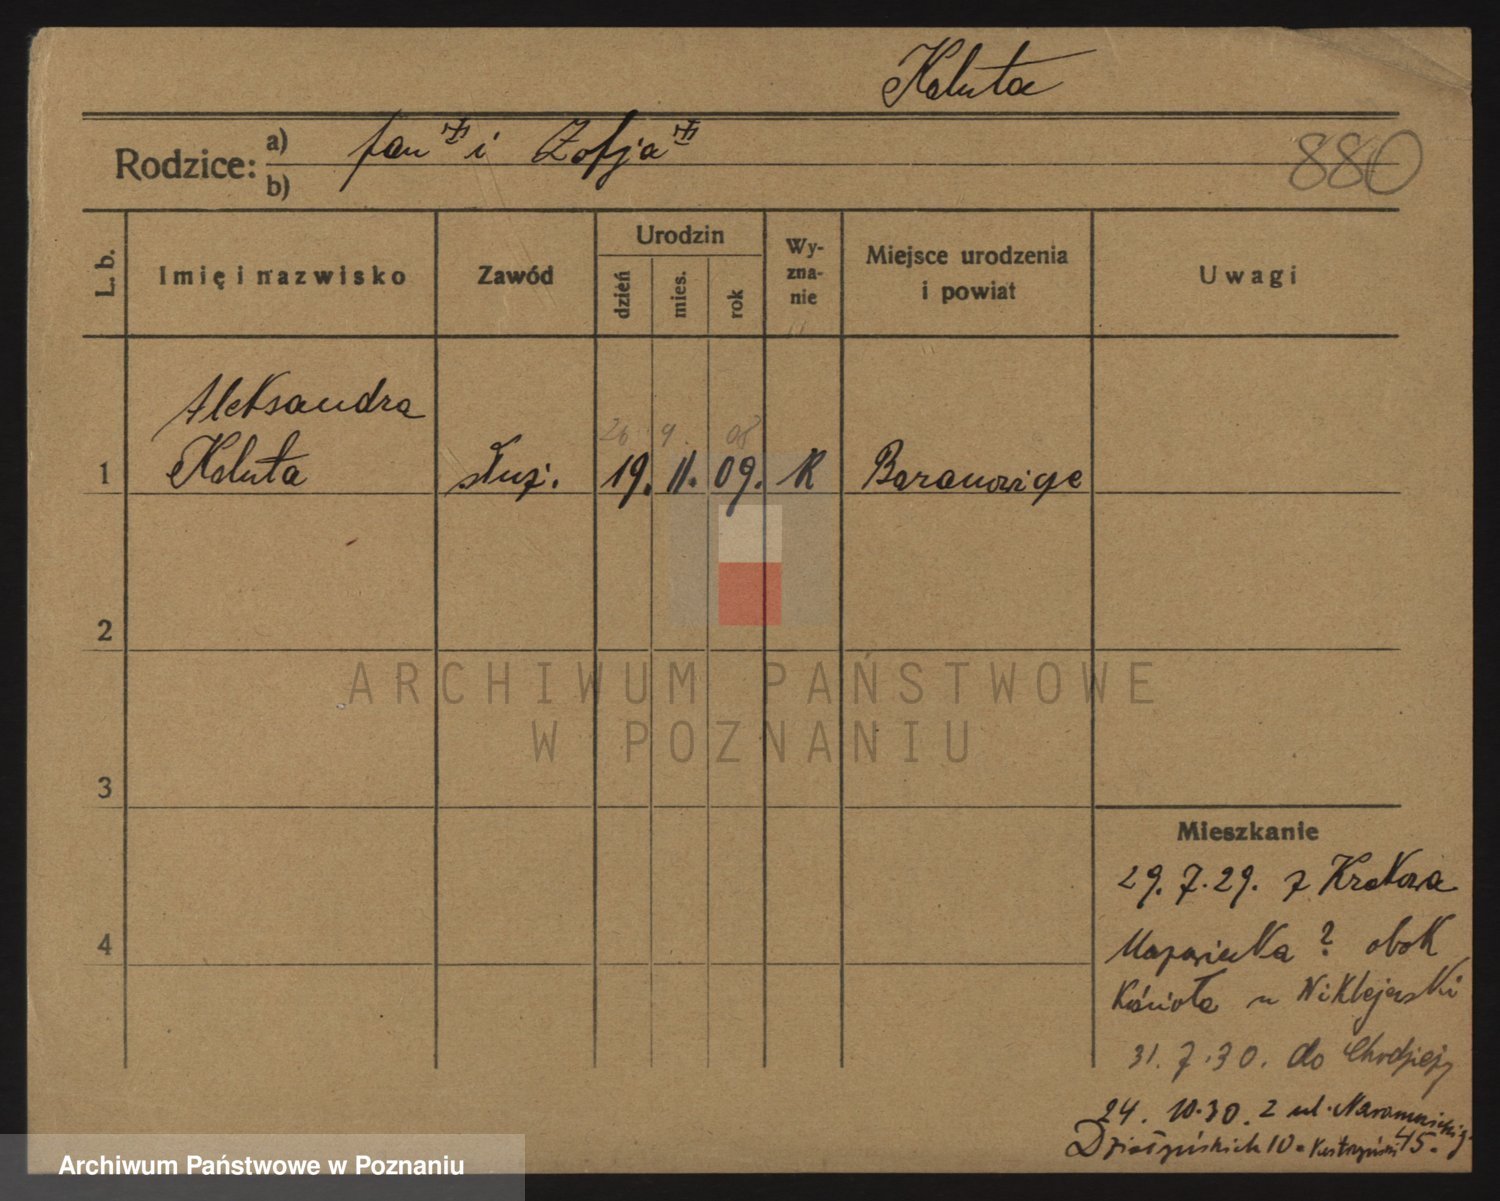 Kałuta
Rodzice: a) Jan i Zofja
b)
880
L. b. Imię i nazwisko Zawód Urodzin dzień mies. rok Wyzna-nie Miejsce urodzenia i powiat Uwagi
26 9. 08
Aleksandra
1 Kałuta służ. 19. 11. 09. R Baranowice
2
ARCHIWUM PAŃSTWOWE
W POZNANIU
3
Mieszkanie
29. 7. 29. z Krakowa
4 ? obok
Kościoła u
31. 7. 30. do Chodzieży
24. 10. 30. z ul. Naramowickiej 45.
Działyńskich 10
Archiwum Państwowe w Poznaniu